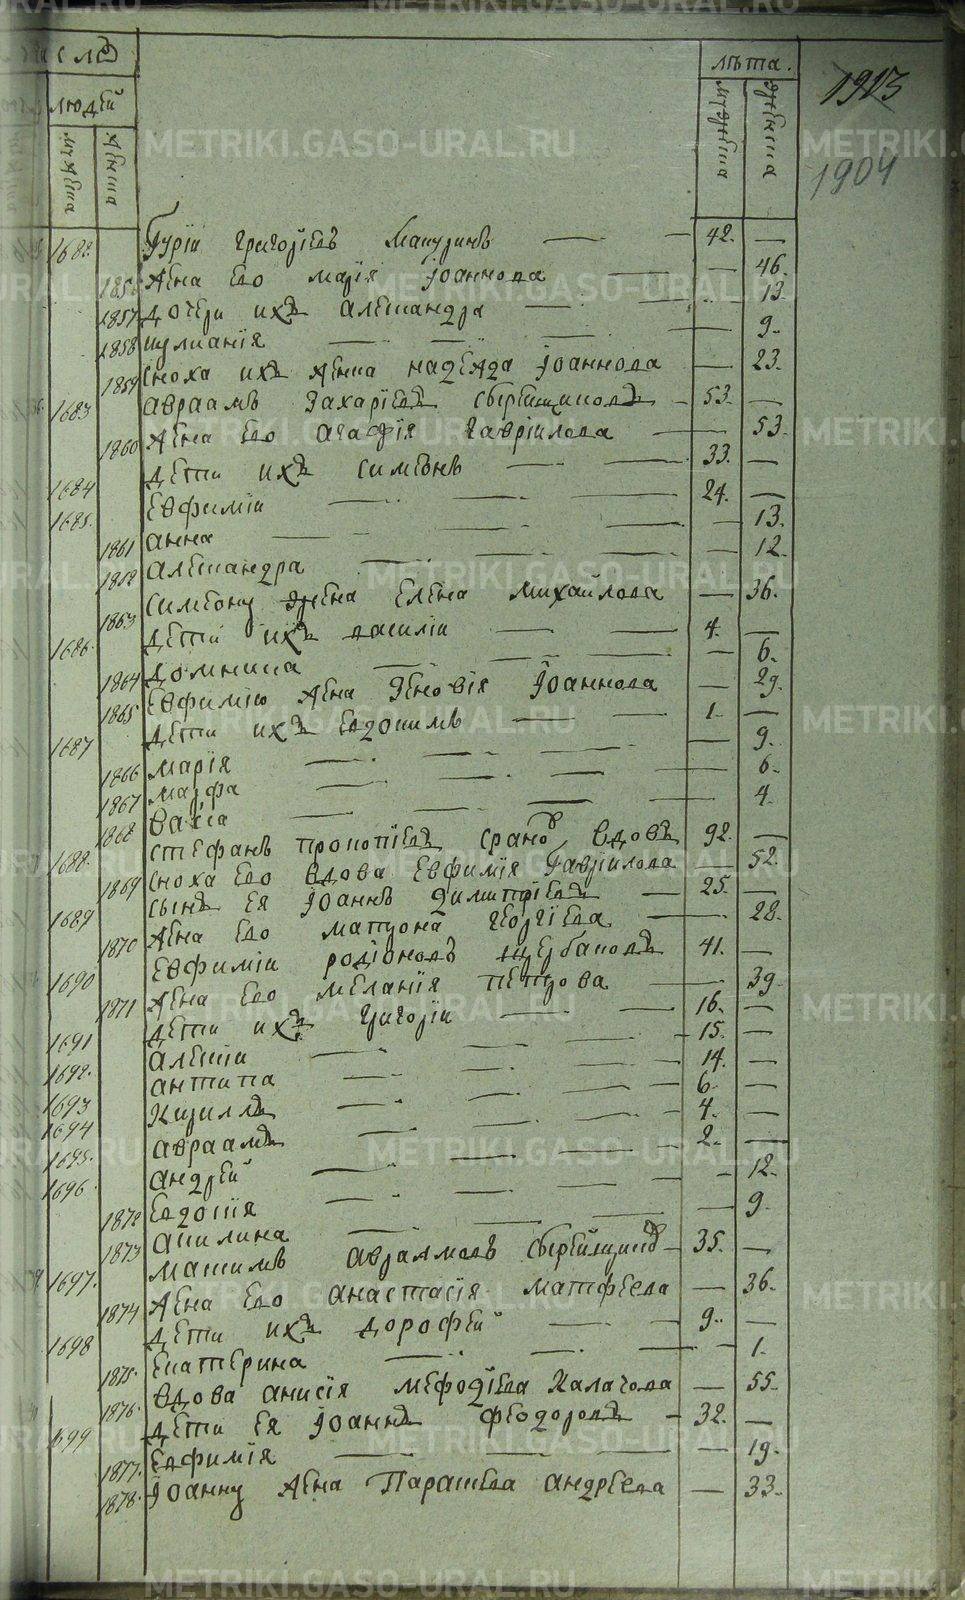 METRIKI.GASO-URAL.RU
людей
лѣта.
мужеска
женска
1913
1904
1682 Гурїи григорїевъ Макуринъ — — 42. —
1856 жена ево марїя Іоаннова — — 46.
1857 дочери ихъ александра — — 13
1858 иулианїя — — 9.
1859 сноха ихъ женка надежда Іоаннова — 23.
1683 авраамъ Захарїевъ — 53. —
1860 жена ево агафїя гавріилова — 53.
1684 дѣти ихъ симеонъ — — 33. —
1685. Евфимїи — — 24. —
1861 анна — — — 13.
1862 александра — — — 12.
1863 симеону жена Елена михайлова — 36.
1686. дѣти ихъ василїи — — 4. —
1864 домника — — — 6.
1865 Евфимїю жена Зеновїя Іоаннова — 29.
1687 дѣти ихъ Евдокимъ — — 1. —
1866 марїя — — — 9.
1867 марфа — — — 6.
1868 васса — — — 4.
1688. стефанъ прокопїевъ вдовъ 92. —
1869 сноха ево вдова Евфимїя Гавріилова — 52.
1689 сынъ ея Іоаннъ димитрїевъ — 25. —
1870 жена ево матрона георгїева — 28.
1690 Евфимїи родїоновъ щербаковъ 41. —
1871 жена ево меланїя петрова — 39.
1691 дѣти ихъ григорїи — — 16. —
1692. алексїи — — — 15. —
1693 антипа — — — 14. —
1694 Кириллъ — — — 6. —
1695. авраамъ — — — 4. —
1696. андрей — — — 2. —
1872 Евдокїя — — — 12.
1873 акилина — — — 9.
1697. максимъ авраамовъ — 35. —
1874 жена ево анастасїя матфеева — 36.
1698 дѣти ихъ дорофей — — 9. —
1875. Екатерина — — — 1.
1876. вдова анисїя мефодїева Калачова — 55.
1699 дѣти ея Іоаннъ феодоровъ — 32. —
1877. Евфимїя — — — 19.
1878. Іоанну жена Параскева андреева — 33.